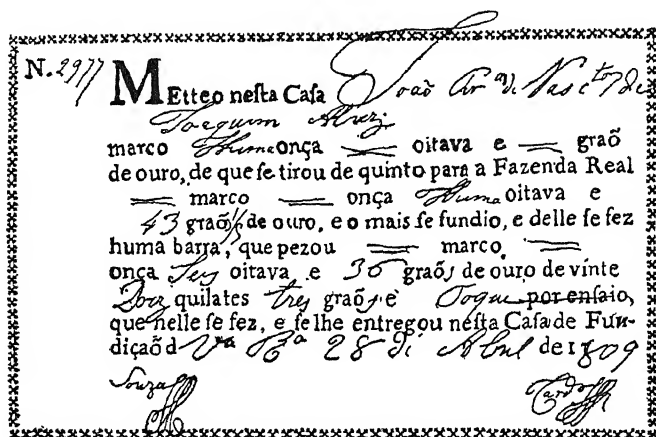 N. 2977 MEtteo nesta Casa João Per.ª de
Joaquim Alvez
marco Huma onça — oitava e — graõ
de ouro, de que se tirou de quinto para a Fazenda Real
— marco — onça Huma oitava e
43 graõs de ouro, e o mais se fundio, e delle se fez
huma barra, que pezou — marco —
onça Seis oitava e 36 graõs de ouro de vinte
Doz quilates tres graõs e Toque por ensaio,
que nelle se fez, e se lhe entregou nesta Casa de Fun-
diçaõ d Vª Rª 28 de Abril de 1809
Souza Cardoso